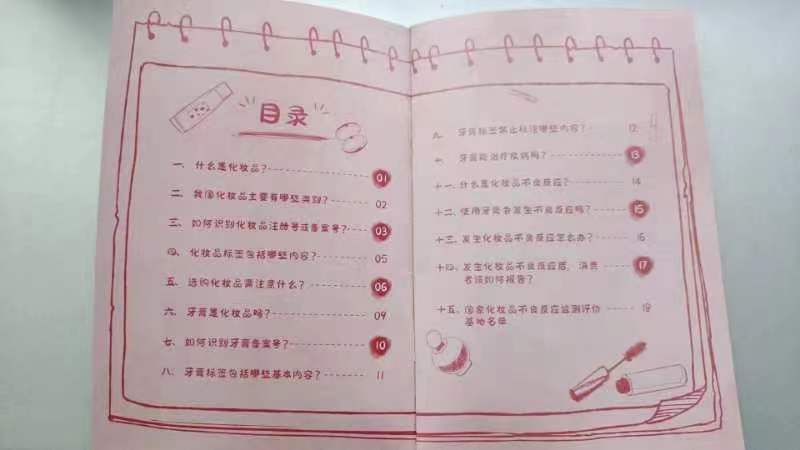 目录
一、什么是化妆品？ 01
二、我国化妆品主要有哪些类别？ 02
三、如何识别化妆品注册号或备案号？ 03
四、化妆品标签包括哪些内容？ 05
五、选购化妆品需注意什么？ 06
六、牙膏是化妆品吗？ 09
七、如何识别牙膏备案号？ 10
八、牙膏标签包括哪些基本内容？ 11
九、牙膏标签禁止标注哪些内容？ 12
十、牙膏能治疗疾病吗？ 13
十一、什么是化妆品不良反应？ 14
十二、使用牙膏会发生不良反应吗？ 15
十三、发生化妆品不良反应怎么办？ 16
十四、发生化妆品不良反应后，消费
者该如何报告？ 17
十五、国家化妆品不良反应监测评价
基地名单 19